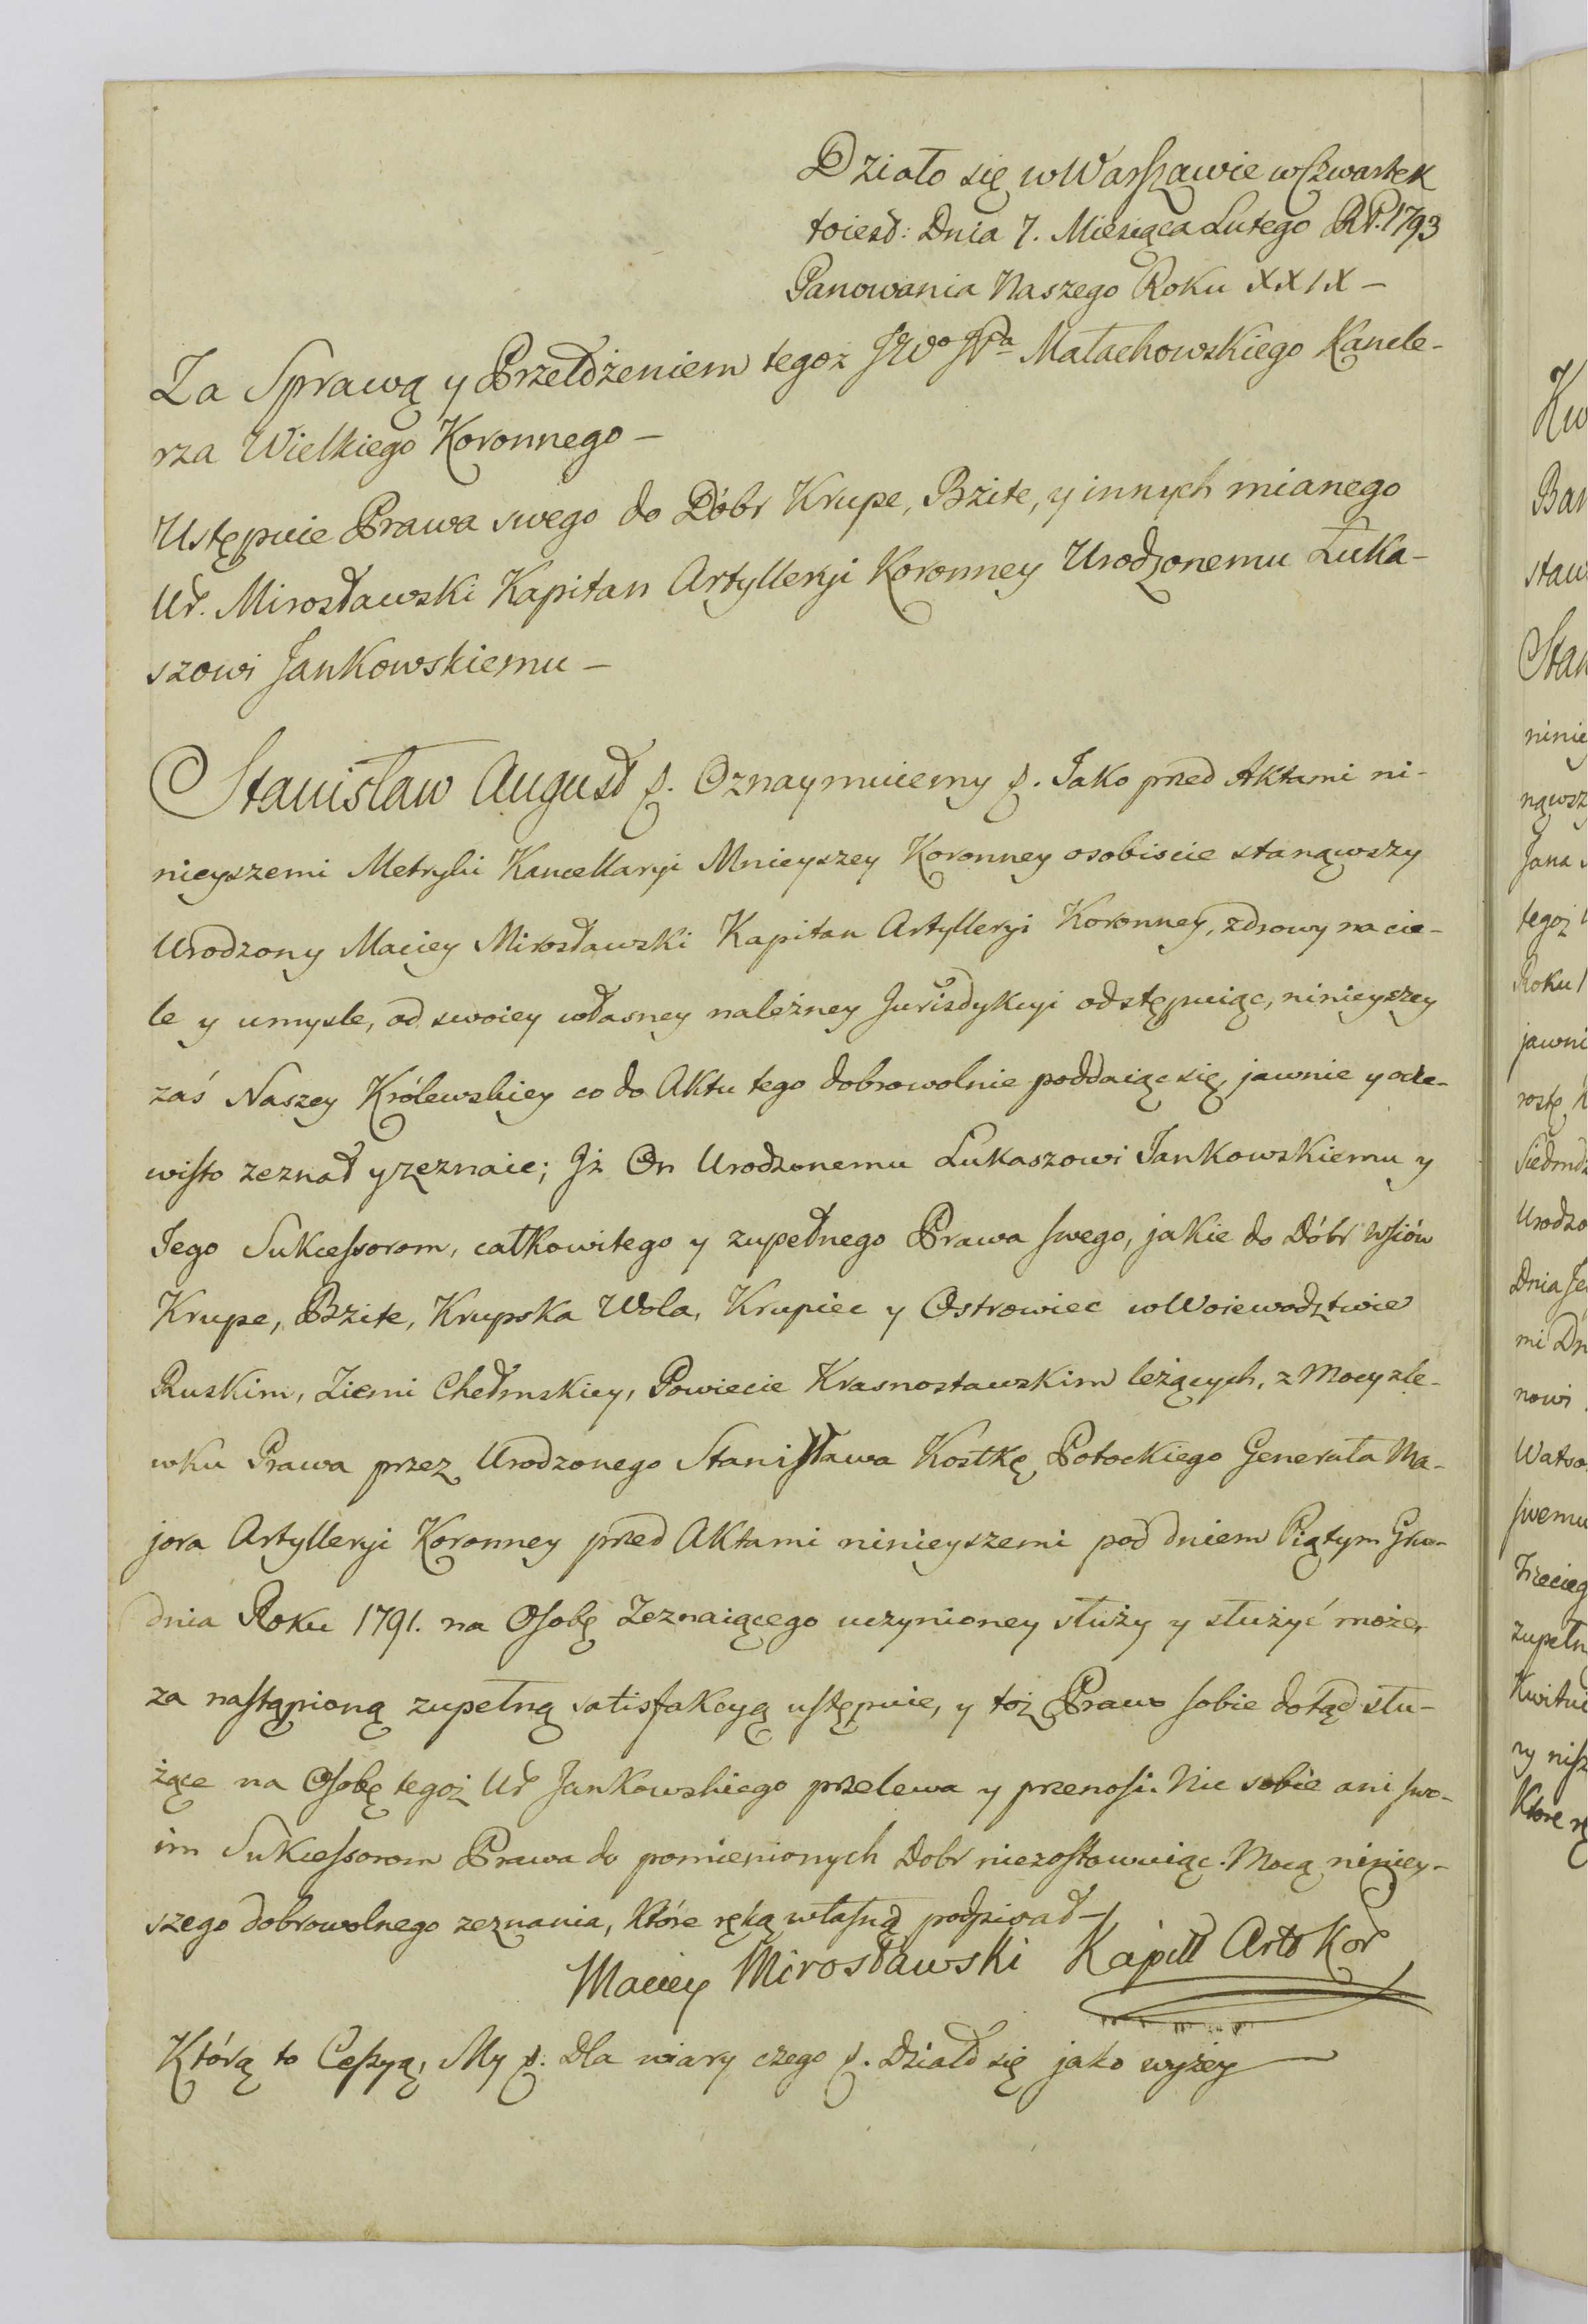 Działo się w Warszawie w Czwartek
toiest: Dnia 7. Miesiąca Lutego RP. 1793
Panowania Naszego Roku XXIX –
Za Sprawą y Przełożeniem tegoż JWo JPa Małachowskiego Kancle-
rza Wielkiego Koronnego –
Ustępuie Prawa swego do Dóbr Krupe, Bzite, y innych mianego
Ur. Mirosławski Kapitan Artylleryi Koronney Urodzonemu Łuka-
szowi Jankowskiemu –
Stanisław August &. Oznaymuiemy &. Jako przed Aktami ni-
nieyszemi Metryki Kancellaryi Mnieyszey Koronney osobiscie stanąwszy
Urodzony Maciey Mirosławski Kapitan Artylleryi Koronney, zdrowy na cie-
le y umysle, od swoiey własney należney Jurisdykcyi odstępuiąc, ninieyszey
zaś Naszey Królewskiey co do Aktu tego dobrowolnie poddaiąc się, jawnie y ocze-
wisto zeznał y zeznaie; Jż On Urodzonemu Łukaszowi Jankowskiemu y
Jego Sukcessorom, całkowitego y zupełnego Prawa swego, jakie do Dóbr Wsiów
Krupe, Bzite, Krupska Wola, Krupiec y Ostrowiec w Woiewodztwie
Ruskim, Ziemi Chełmskiey, Powiecie Krasnostawskim leżących, z Mocy zle-
wku Prawa przez Urodzonego Stanisława Kostkę Potockiego Generała Ma-
jora Artylleryi Koronney przed Aktami ninieyszemi pod dniem Piątym Gru-
dnia Roku 1791. na Osobę Zeznaiącego uczynioney służy y służyć może,
za nastąpioną zupełną satisfakcyą ustępuie, y toż Prawo sobie dotąd słu-
żące na Osobę tegoż Ur Jankowskiego przelewa y przenosi. Nic sobie ani swo-
im Sukcessorom Prawa do pomienionych Dobr niezostawuiąc. Mocą niniey-
szego dobrowolnego zeznania, które ręką własną podpisał –
Maciey Mirosławski Kapitt Art Kor
Którą to Cessyą, My &. Dla wiary czego &. Działo się jako wyżey